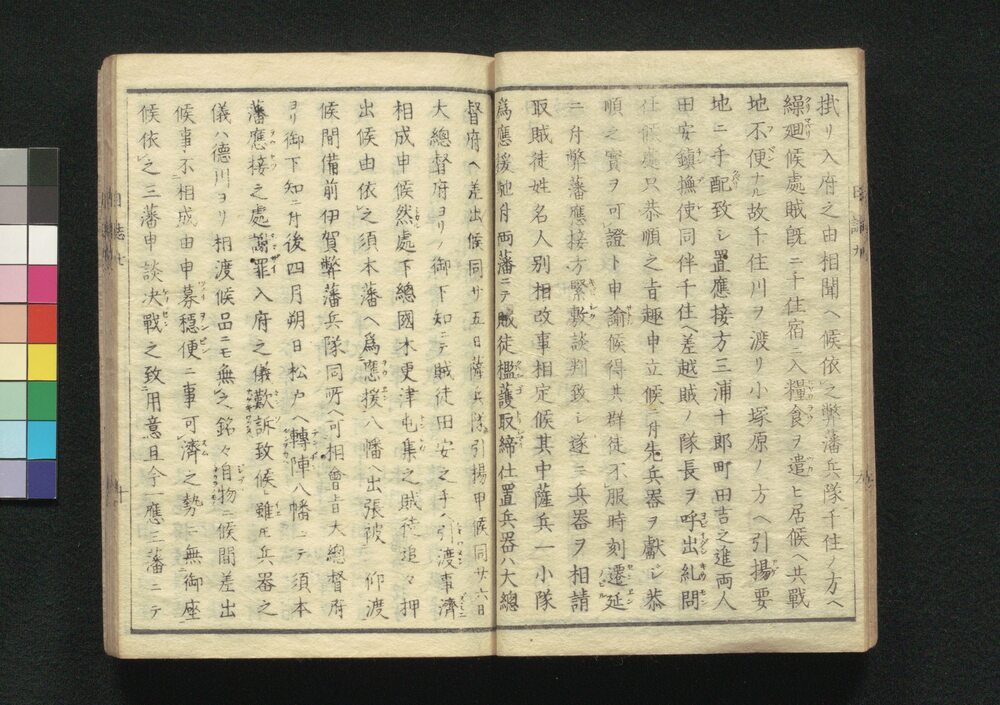 掛リ入府之由相聞ヘ候依之弊藩兵隊千住ノ方ヘ
繰廻候處賊既ニ千住宿ニ入糧食ヲ遣ヒ居候ヘ共戰
地不便ナル故千住川ヲ渡リ小塚原ノ方ヘ引揚要
地ニ手配致シ置應接方三浦十郎町田吉之進両人
田安鎮撫使同伴千住ヘ差越賊ノ隊長ヲ呼出糺問
仕候處只恭順之旨趣申立候ニ付先兵器ヲ獻シ恭
順之實ヲ可證ト申諭候得共群徒不服時刻遷延
ニ付弊藩應接方緊敷談判致シ遂ニ兵器ヲ相請
取賊徒姓名人別相改事相定候其中薩兵一小隊
為應援馳付両藩ニテ賊徒檻護取締仕置兵器ハ大總
督府ヘ差出候同廿五日薩兵隊引揚甲候同廿六日
大總督府ヨリノ御下知ニテ賊徒田安之手ヘ引渡事濟
相成申候然處下總國木更津屯集之賊徒追々押
出候由依之須本藩ヘ為應援八幡ヘ出張被 仰渡
候間備前伊賀弊藩兵隊同所ヘ可相會旨大總督府
ヨリ御下知ニ付後四月朔日松戸ヘ轉陣八幡ニテ須本
藩應接之處謝罪入府之儀歎訴致候ヘ雖𪜈兵器之
儀ハ德川ヨリ相渡候品ニモ無之銘々自物ニ候間差出
候事不相成由申募穏便ニ事可濟之勢ニ無御座
候依之三藩申談決戰之致用意且今一應三藩ニテ